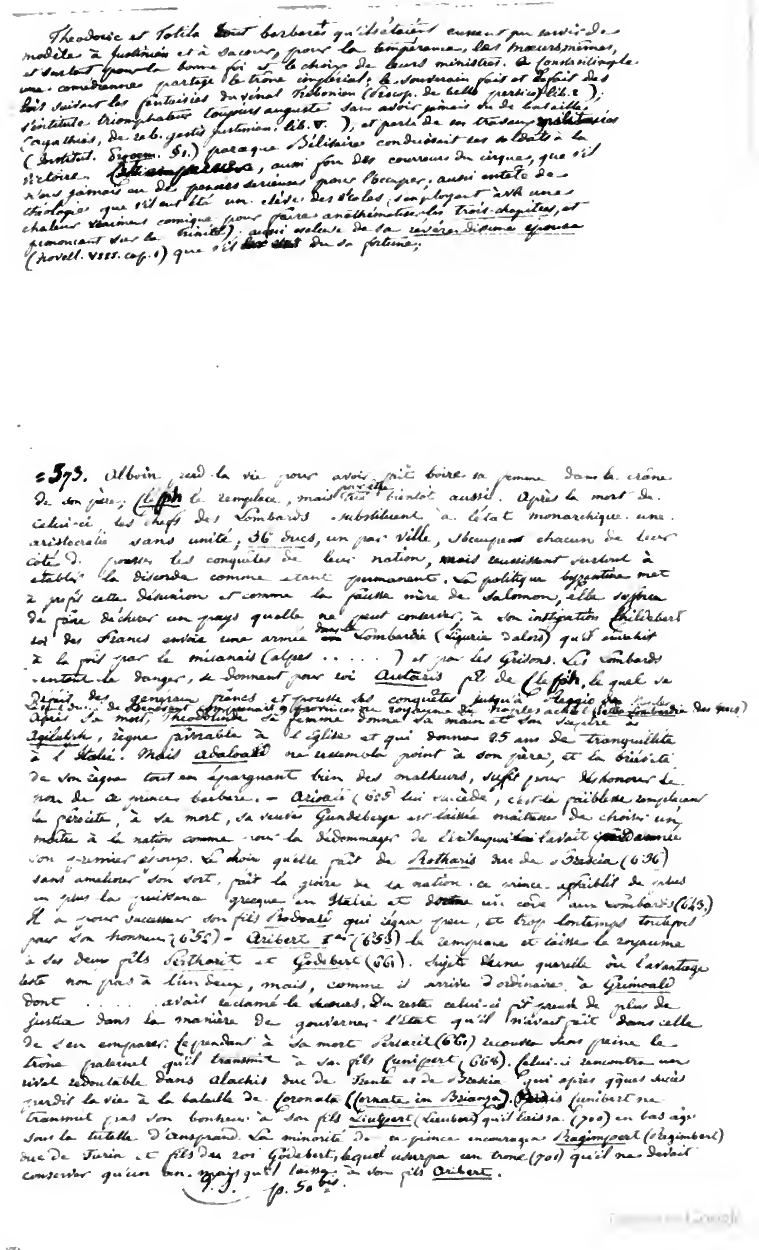 Theodoric et Totila tout barbares qu'ils étaient eussent pu servir de
modèle à Justinien et à sa cour, pour la tempérance, les mœurs mêmes,
et surtout pour la bonne foi et le choix de leurs ministres. à Constantinople
une comédienne partage le trône impérial; le souverain fait et défait des
lois suivant les fantaisies du vénal Trebonien (Procop. de bello persico lib. 2);
s'intitule triomphateur toujours auguste sans avoir jamais vu de bataille
(agathias, de reb. gestis Justinien. lib. V. ), et parle de ses travaux militaires
(Institut. Prooem. §1.) parceque Bélisaire conduisait ses soldats à la
victoire. aussi fou des coureurs du cirque, que s'il
n'eut jamais eu de pensées sérieuses pour l'occuper; aussi entêté de
théologie que s'il eut été un élève des écoles, employant avec une
chaleur vraiment comique pour faire anathématiser les trois chapitres, et
prononçant sur la Trinité); aussi esclave de sa révérendissime épouse
(novell. VIII. cap. 1) que s'il du sa fortune;
= 573. Alboin perd la vie pour avoir fait boire sa femme dans le crâne
de son père; Cleph le remplace, mais bientot aussi. Après la mort de
celui-ci les chefs des Lombards substituent à l'état monarchique une
aristocratie sans unité; 36 ducs, un par ville, s'occupent chacun de leur
côté à pousser les conquêtes de leur nation, mais réussissent surtout à
établir la discorde comme étant permanent. La politique byzantine met
à profit cette désunion et comme la fausse mère de Salomon, elle s'efforce
de faire déchirer un pays quelle ne peut conserver, à son instigation Childebert
roi des Francs envoie une armée dans la Lombardie (Ligurie d'alors) qu'il envahit
à la fois par le milanais (alpes ..... ) et par les Grisons. Les Lombards
sentent le danger, se donnent pour roi Autaris fils de Cleph, lequel se
défait des généraux francs et pousse ses conquêtes jusqu'à Reggio
Après sa mort, Théodelinde sa femme donne sa main et son sceptre à
Agilulph, règne favorable à l'église et qui donna 25 ans de tranquillité
à l'Italie. Mais Adaloald ne ressembla point à son père, et la brièveté
de son règne tout en épargnant bien des malheurs, suffit pour déshonorer le
nom de ce prince barbare. – Arioald (625) lui succède, c'est la faiblesse remplaçant
la férocité; à sa mort, sa veuve Gundeberge est laissée maîtresse de choisir un
maître à la nation comme pour la dédommager de l'avait
son premier époux. Le choix quelle fait de Rotharis duc de Brescia (636)
sans améliorer son sort, fait la gloire de sa nation. ce prince affaiblit de plus
en plus la puissance grecque en Italie et donne un code aux Lombards (643.)
Il a pour successeur son fils Rodoald qui régna peu, et trop lontems toutefois
pour son honneur (652) – Aribert 1er (653) le remplace et laisse le royaume
à ses deux fils Pertharit et Godebert (661). Sujet d'une querelle où l'avantage
reste non pas à l'un deux, mais, comme il arrive d'ordinaire à Grimoald
dont ...... avait réclamé le secours. Du reste celui-ci fit preuve de plus de
justice dans la manière de gouverner l'état qu'il n'avait fait dans celle
de s'en emparer. Cependant à sa mort Pertarit recouvra sans peine le
trône paternel qu'il transmit à sa fils Cunipert (668). Celui-ci rencontra un
rival redoutable dans Alachis duc de Trente et de Brescia qui après qques succès
perdit la vie à la bataille de Coronata (Cornate in Brianza). Mais Cunibert ne
transmit pas son bonheur à son fils Liutpert (Lieubert) qu'il laissa (700) en bas âge
sous la tutelle d'Ansprand. La minorité de ce prince encouragea Ragimpert (Regimbert)
duc de Turin et fils du roi Godebert, lequel usurpa un trone (701) qu'il ne devait
conserver qu'un an. mais qu'il laissa à son fils Aribert.
p. 50 bis.